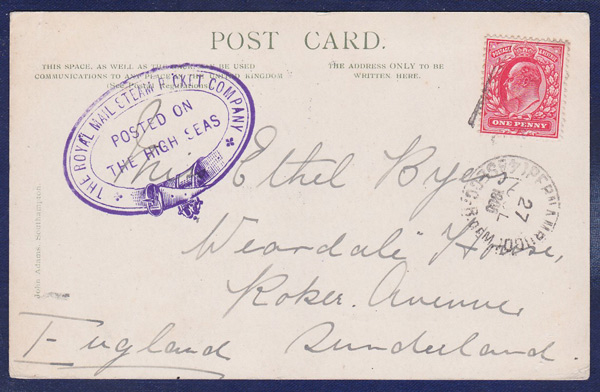 POST CARD.
THIS SPACE, AS WELL AS THE BACK, MAY BE USED
COMMUNICATIONS TO ANY PLACE IN THE UNITED KINGDOM
(See Postal Regulations)
THE ADDRESS ONLY TO BE
WRITTEN HERE.
ONE PENNY
THE ROYAL MAIL STEAM PACKET COMPANY
POSTED ON
THE HIGH SEAS
27
Ethel
"Weardale" House,
Roker Avenue
Sunderland.
England
John Adams, Southampton.